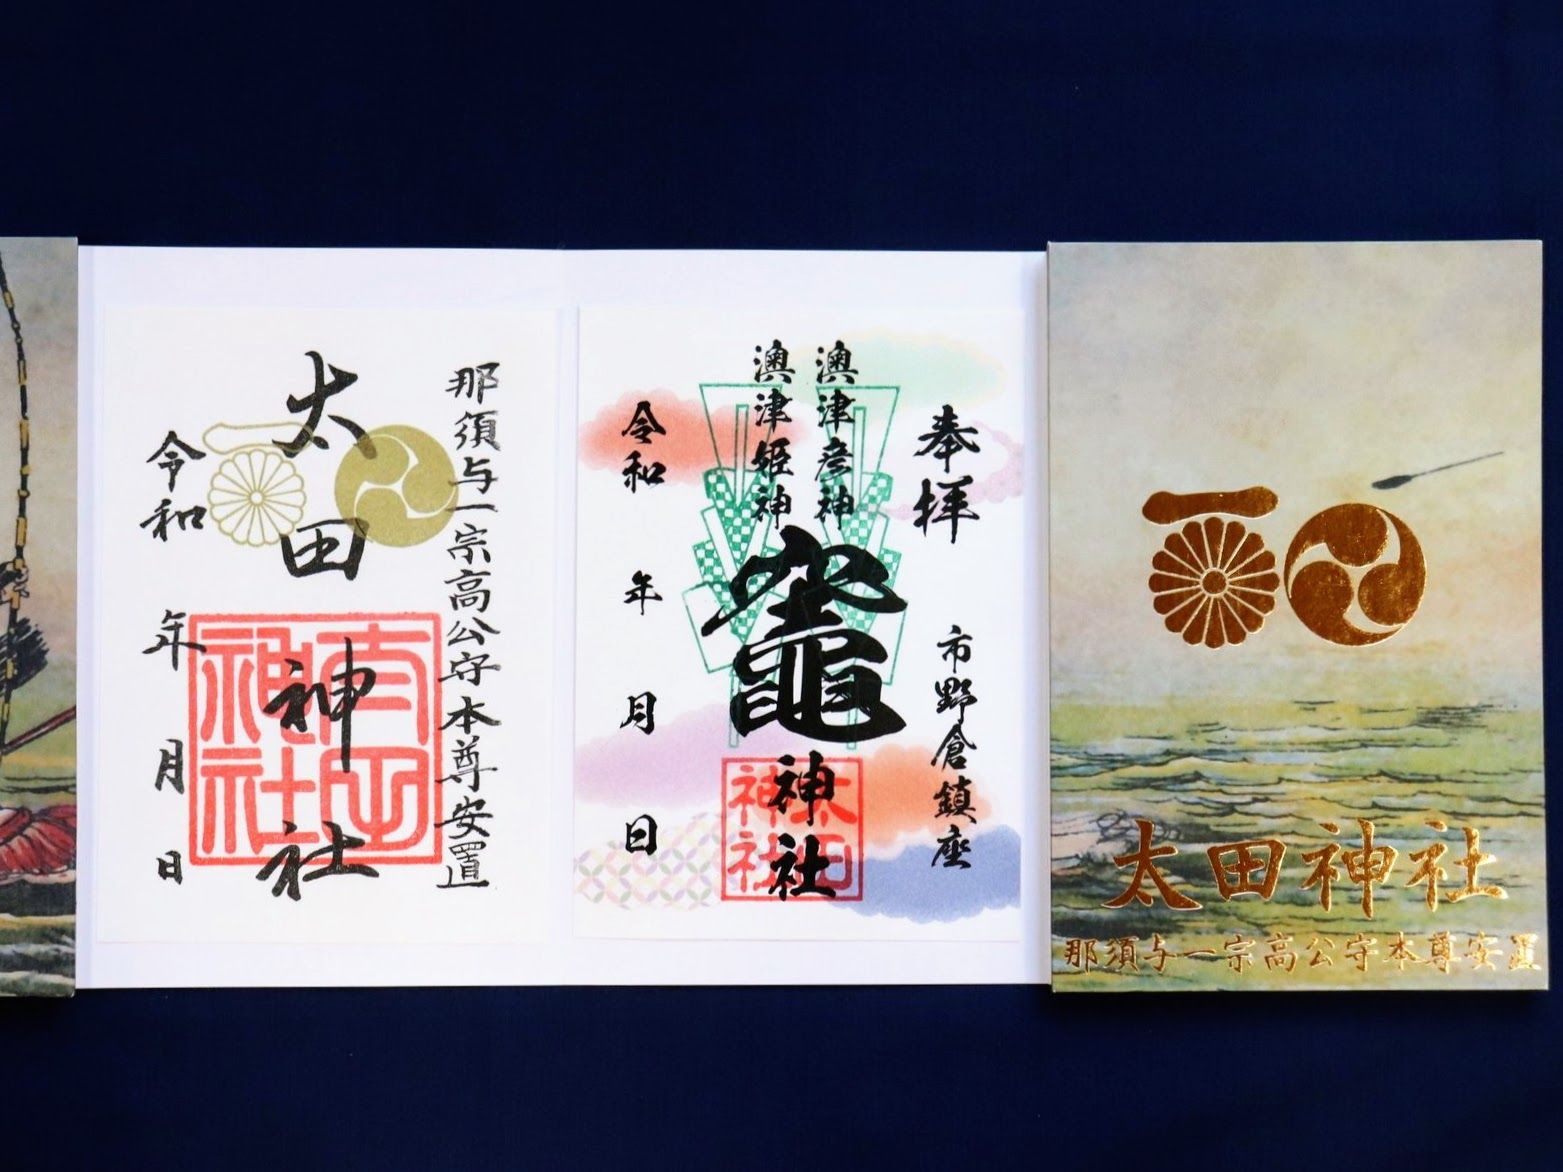 那須与一宗高公守本尊安置
太田神社
太田神社
令和 年 月 日
奉拝
市野倉鎮座
澳津彦神
澳津姫神
竈神社
太田神社
令和 年 月 日
太田神社
那須与一宗高公守本尊安置